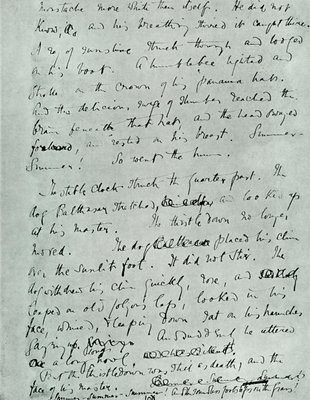 moustache more white than itself. He did not
know, and his breathing stirred it caught there.
A ray of sunshine struck through and lodged
on his boot. A humblebee lighted and
strolled on the crown of his Panama hat.
And the delicious surge of slumber reached the
brain beneath that hat, and the head swayed
forward, and rested on his breast. Summer-
Summer! So went the hum.
The stable clock struck the quarter past. The
dog Balthasar stretched, and looked up
at his master. The thistledown no longer
moved. The dog placed his chin
over the sunlit foot. It did not stir. The
dog withdrew his chin quickly, rose, and
leaped on old Jolyon's lap, looked in his
face, whined, & leaping down sat on his haunches
gazing up. And suddenly he uttered
a long long howl
But the thistledown was still as death, and the
face of his master.
Summer-Summer-Summer! footsteps on the Grass!